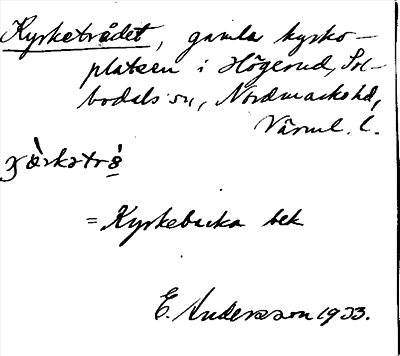 Kyrketrådet, gamla kyrko-
platsen i Högerud, Sil-
bodals sn, Nordmarks hd,
Värml. l.
= Kyrkebacka bek
E. Andersson 1933.